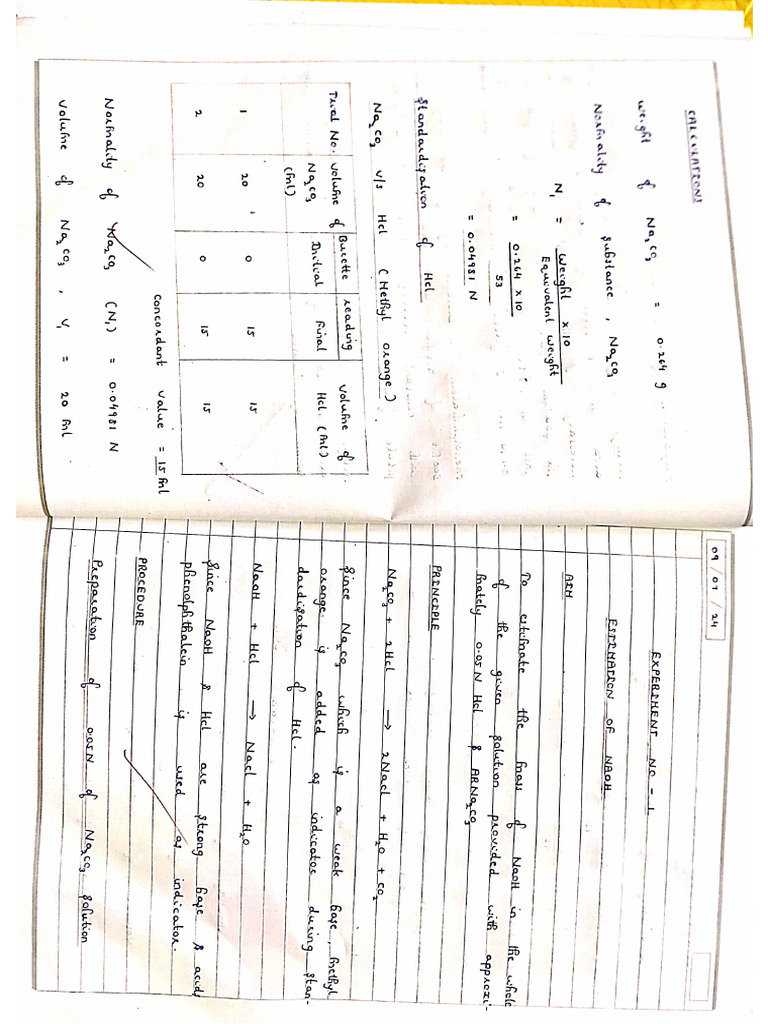 CALCULATIONS
Weight of Na2CO3 = 0.264 g
Normality of substance, Na2CO3
N1 = Weight x 10
Equivalent Weight
= 0.264 x 10
53
= 0.04981 N
Standardisation of Hcl
Na2CO3 v/s Hcl (Methyl orange)
Trial No. Volume of Na2CO3 (ml) Burette reading Volume of Hcl (ml)
Initial Final
1 20 0 15 15
2 20 0 15 15
concordant value = 15 ml
Normality of Na2CO3 (N1) = 0.04981 N
Volume of Na2CO3, V1 = 20 ml
09/07/24
EXPERIMENT NO - 1
ESTIMATION OF NAOH
AIM
To estimate the mass of NaOH in the whole
of the given solution provided with approxi-
mately 0.05N Hcl & ARNa2CO3
PRINCIPLE
Na2CO3 + 2Hcl → 2Nacl + H2O + CO2
Since Na2CO3 which is a weak base, methyl
orange is added as indicator during stan-
dardisation of Hcl.
NaOH + Hcl → Nacl + H2O
Since NaOH & Hcl are strong base & acids
phenolphthalein is used as indicator.
PROCEDURE
Preparation of 0.05N of Na2CO3 solution